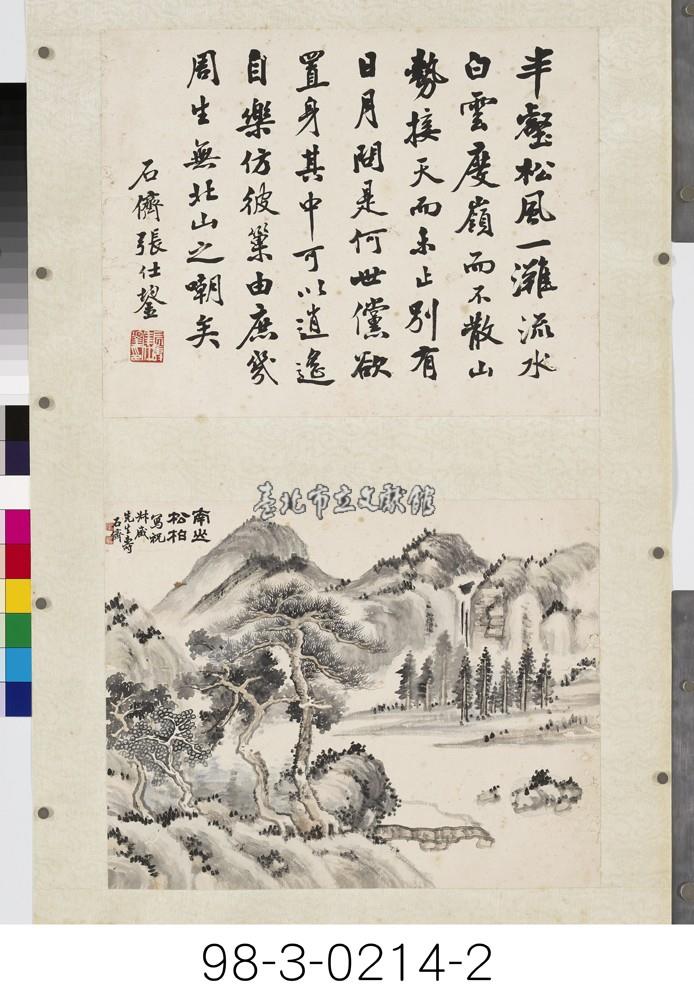 半壑松風一灘流水
白雲度嶺而不散山
勢接天而未止別有
日月問是何世儻欲
置身其中可以逍遙
自樂仿彼巢由庶幾
周生無北山之嘲矣
石儕張仕鋆
臺北市立文獻館
南山
松柏
寫祝
先生壽
石儕
98-3-0214-2